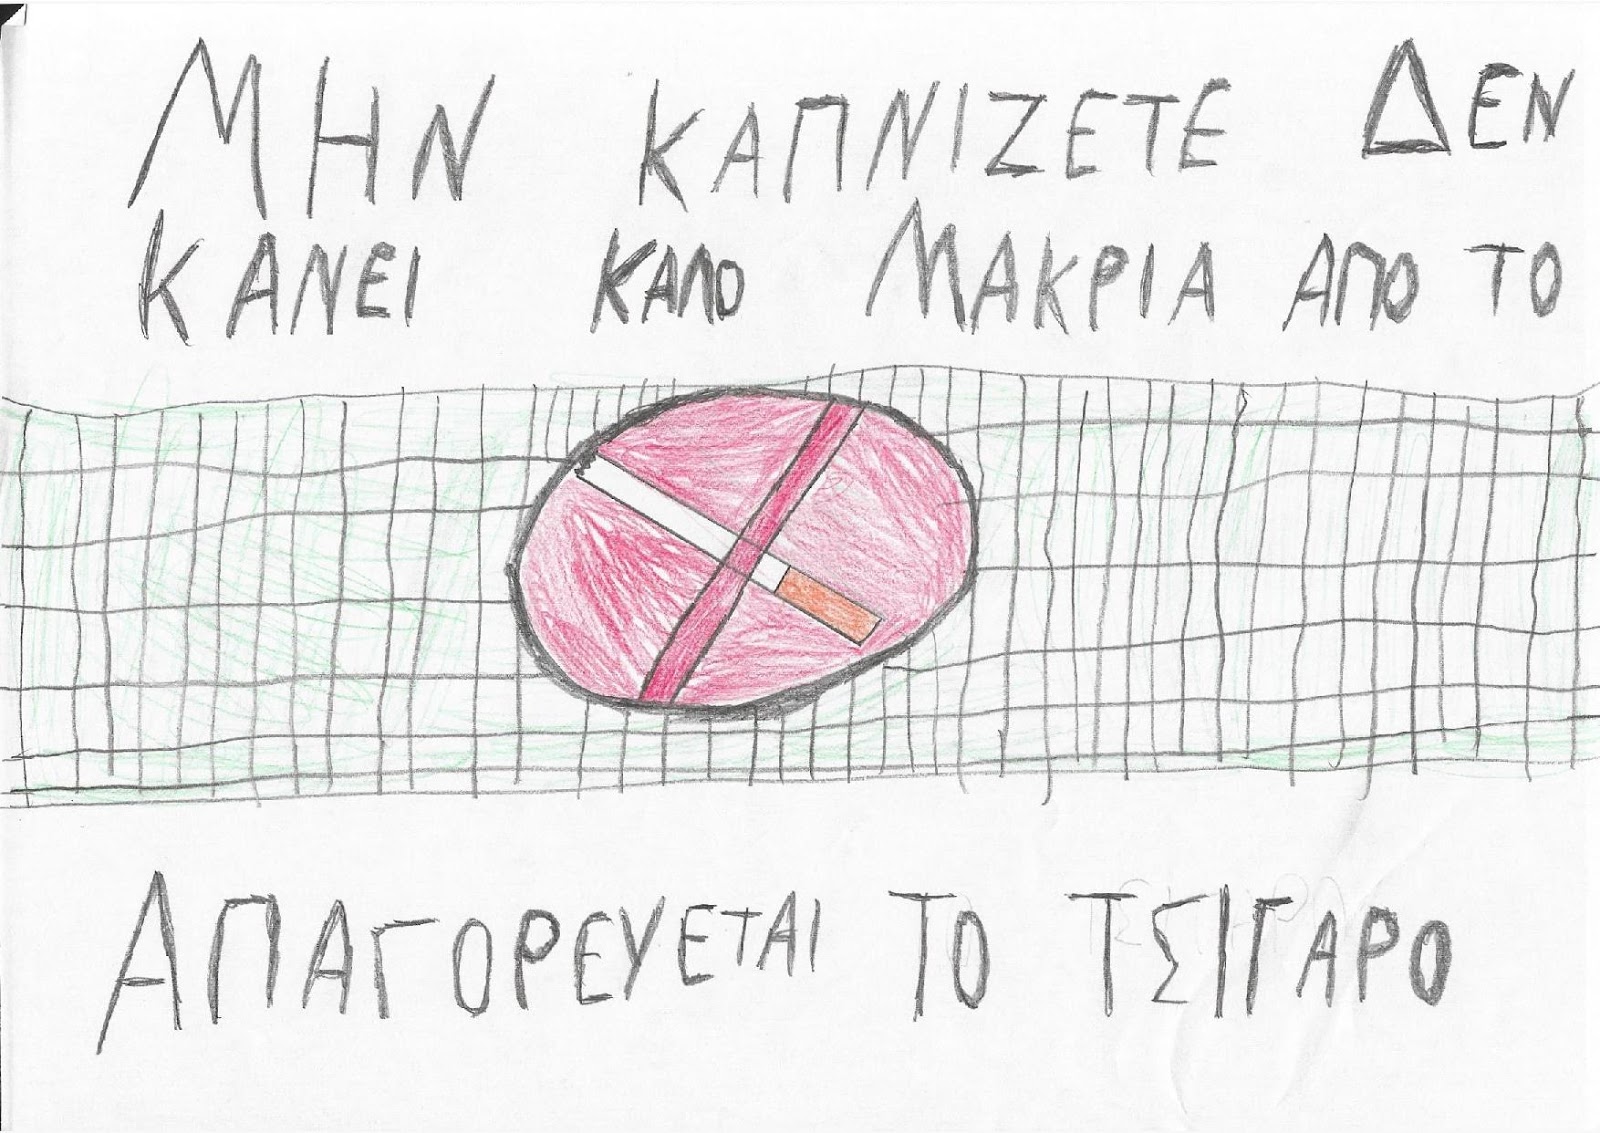 ΜΗΝ ΚΑΠΝΙΖΕΤΕ ΔΕΝ
ΚΑΝΕΙ ΚΑΛΟ ΜΑΚΡΙΑ ΑΠΟ ΤΟ
ΑΠΑΓΟΡΕΥΕΤΑΙ ΤΟ ΤΣΙΓΑΡΟ